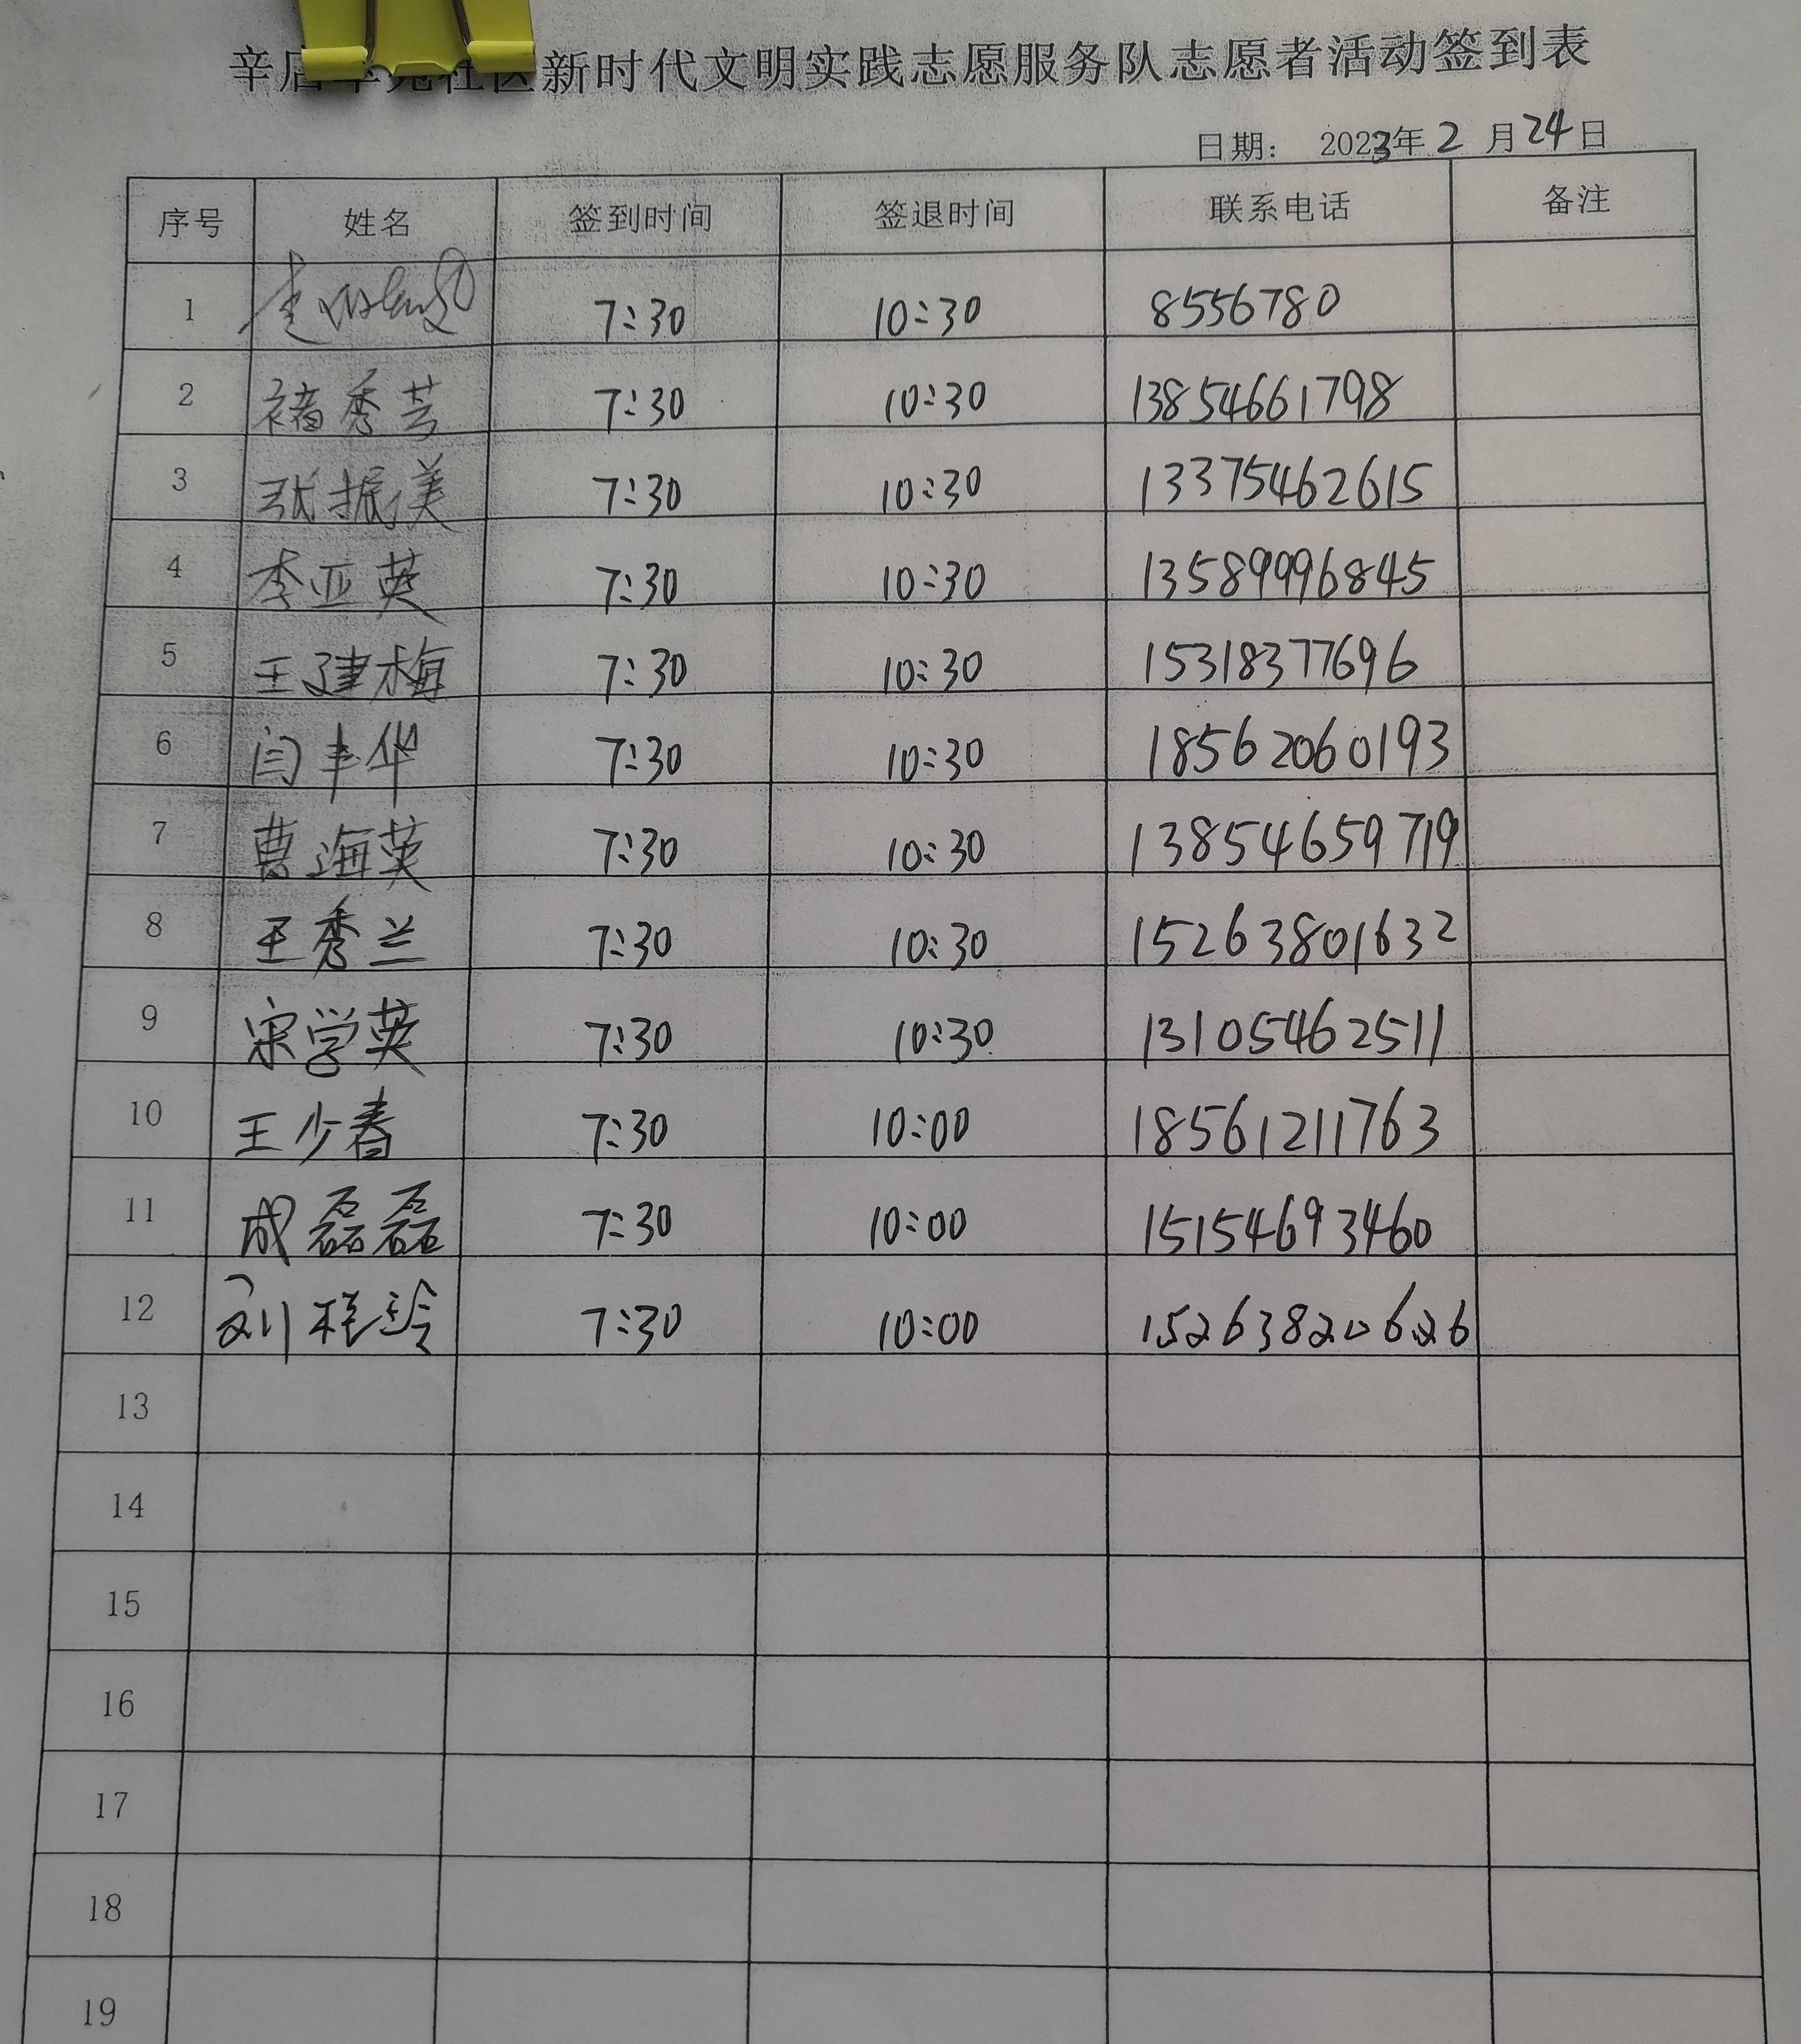 辛店 社区新时代文明实践志愿服务队志愿者活动签到表
日期： 2023年 2 月 24 日
序号 姓名 签到时间 签退时间 联系电话 备注
1 7:30 10:30 8556780
2 褚秀芸 7:30 10:30 13854661798
3 张振美 7:30 10:30 13375462615
4 李亚英 7:30 10:30 13589996845
5 王建梅 7:30 10:30 15318377696
6 闫丰华 7:30 10:30 18562060193
7 曹海英 7:30 10:30 13854659719
8 王秀兰 7:30 10:30 15263801632
9 宋学英 7:30 10:30 13105462511
10 王少春 7:30 10:00 18561211763
11 成磊磊 7:30 10:00 15154693460
12 刘桂玲 7:30 10:00 15263820626
13
14
15
16
17
18
19